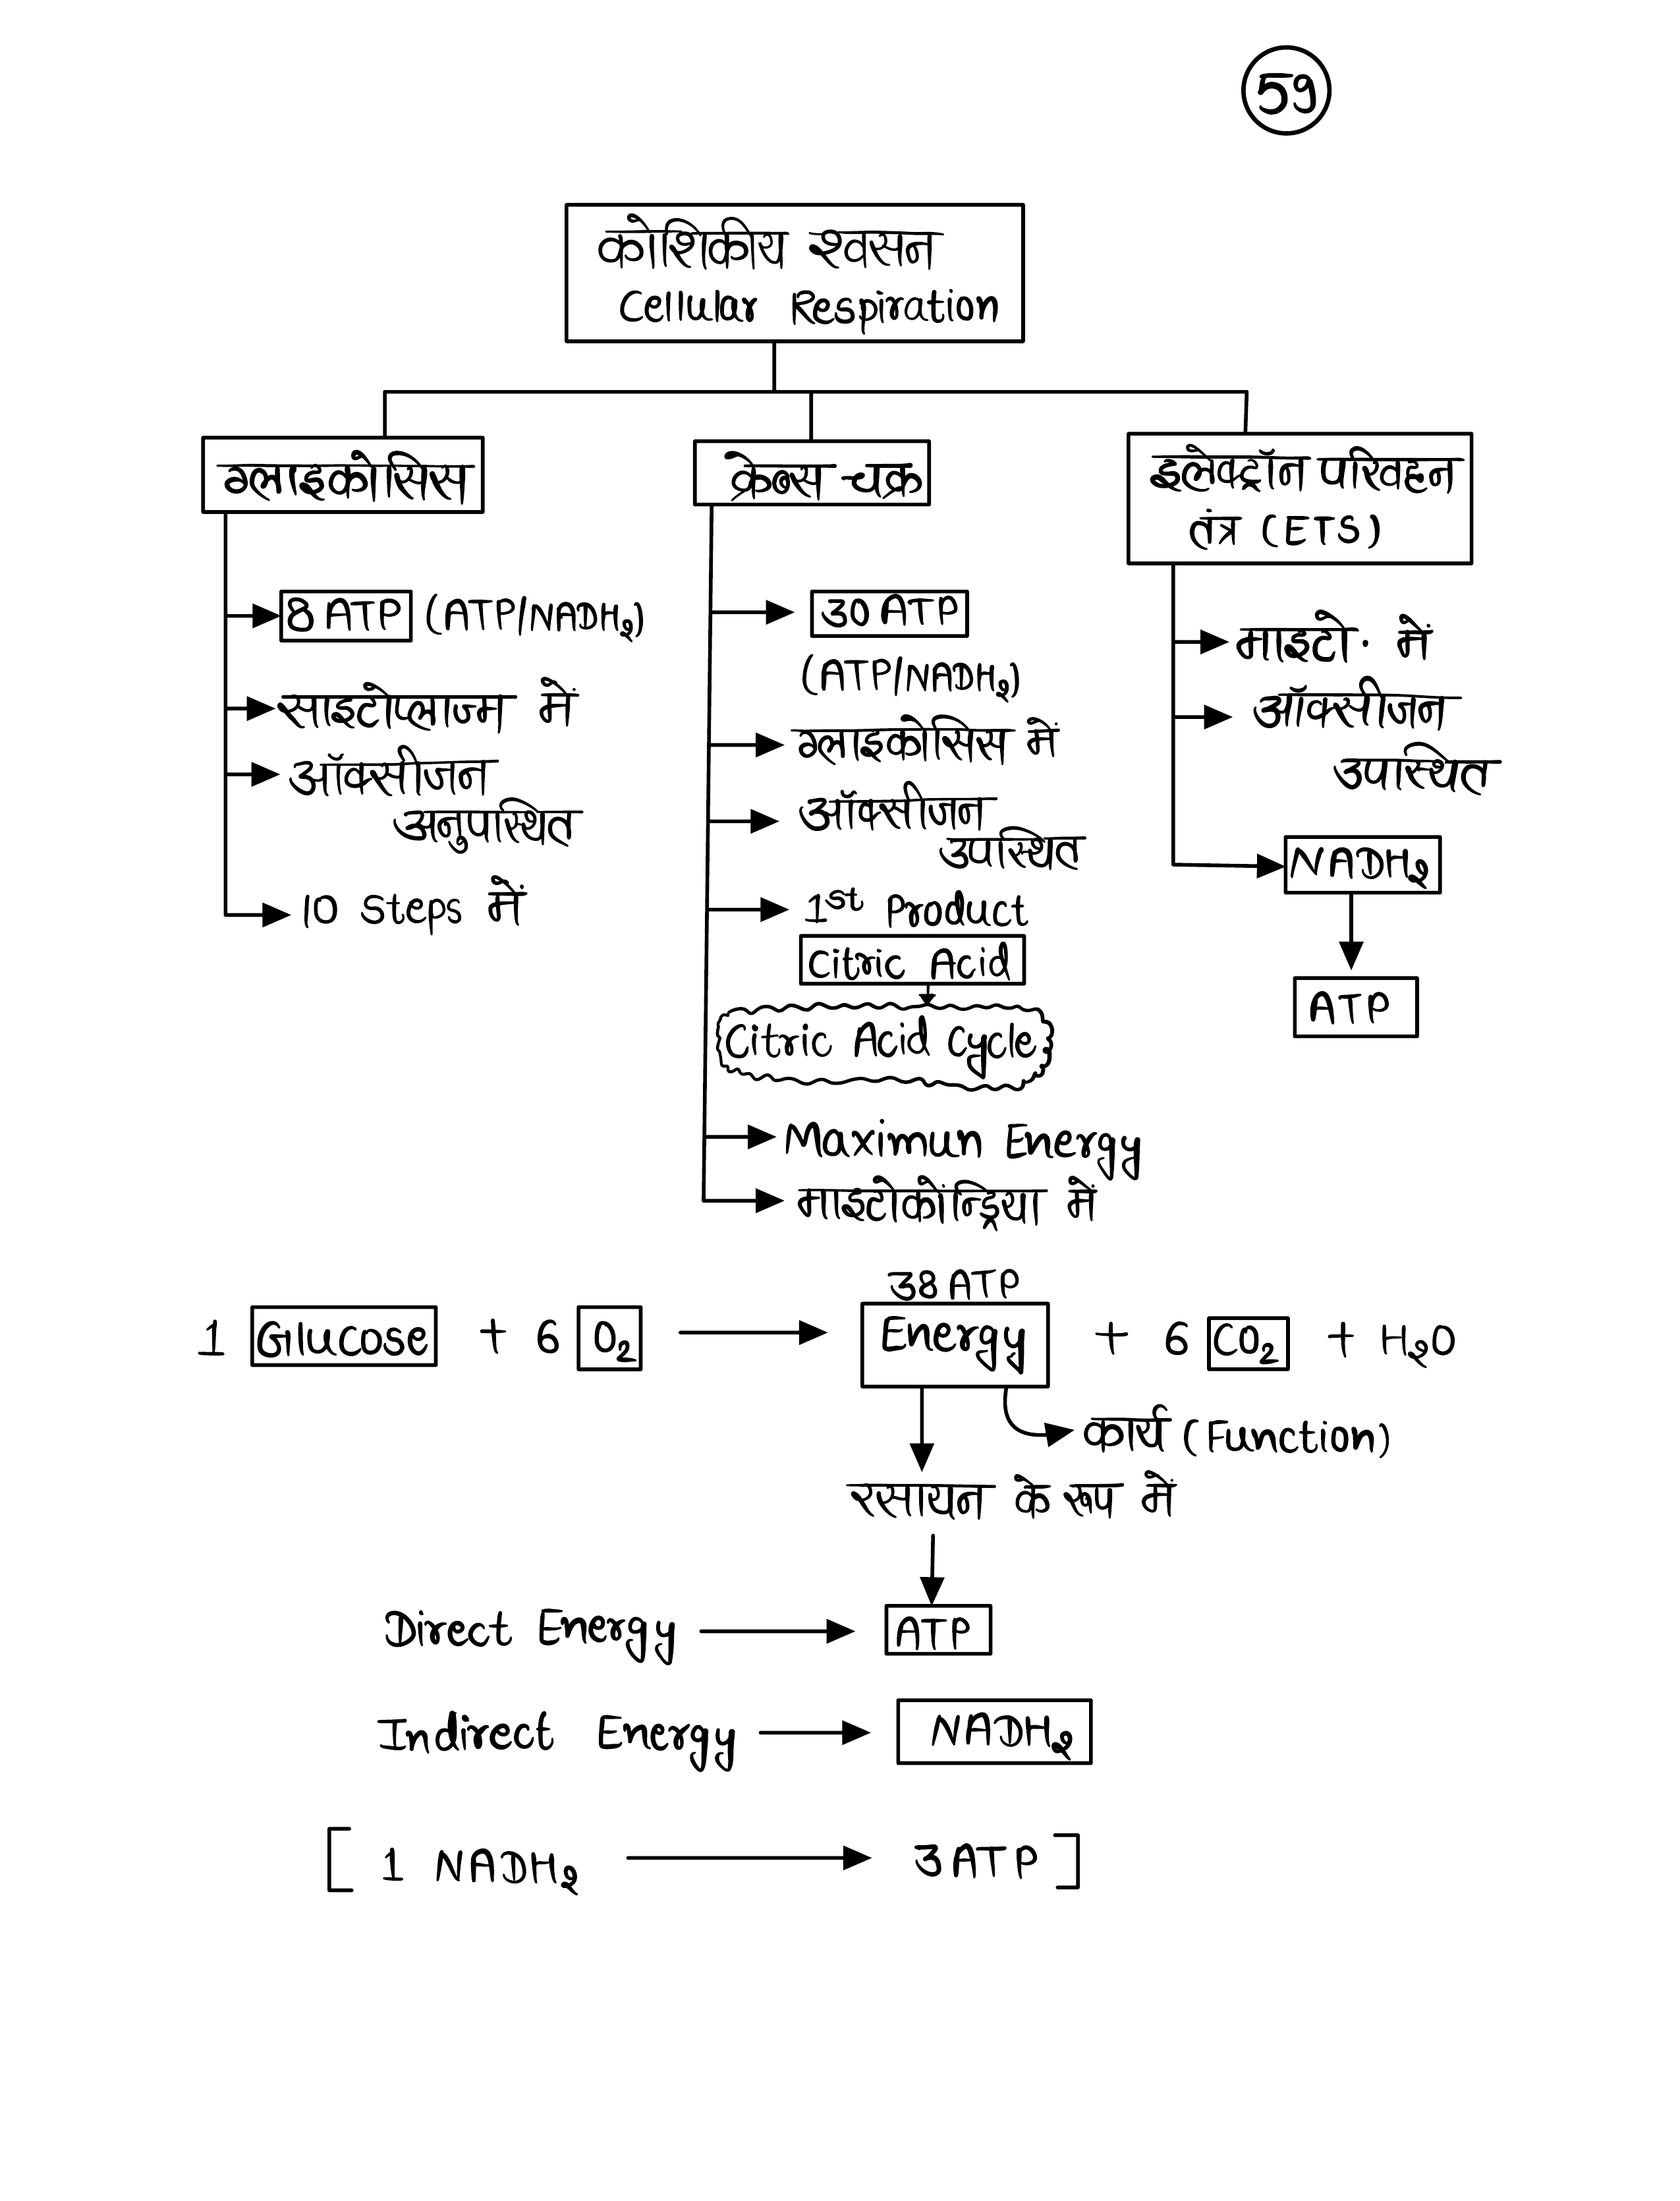 59
कोशिकीय श्वसन
Cellular Respiration
ग्लाइकोसिस
8 ATP (ATP/NADH₂)
साइटोप्लाज्म में
ऑक्सीजन
अनुपस्थित
10 Steps में
क्रेब्स चक्र
30 ATP
(ATP/NADH₂)
ग्लाइकोसिस में
ऑक्सीजन
उपस्थित
1st Product
Citric Acid
Citric Acid Cycle
Maximun Energy
माइटोकोंन्ड्रिया में
इलेक्ट्रॉन परिवहन
तंत्र (ETS)
माइटो. में
ऑक्सीजन
उपस्थित
NADH₂
ATP
38 ATP
1 Glucose + 6 O₂ → Energy + 6 CO₂ + H₂O
कार्य (Function)
रसायन के रूप में
Direct Energy → ATP
Indirect Energy → NADH₂
[ 1 NADH₂ → 3 ATP ]